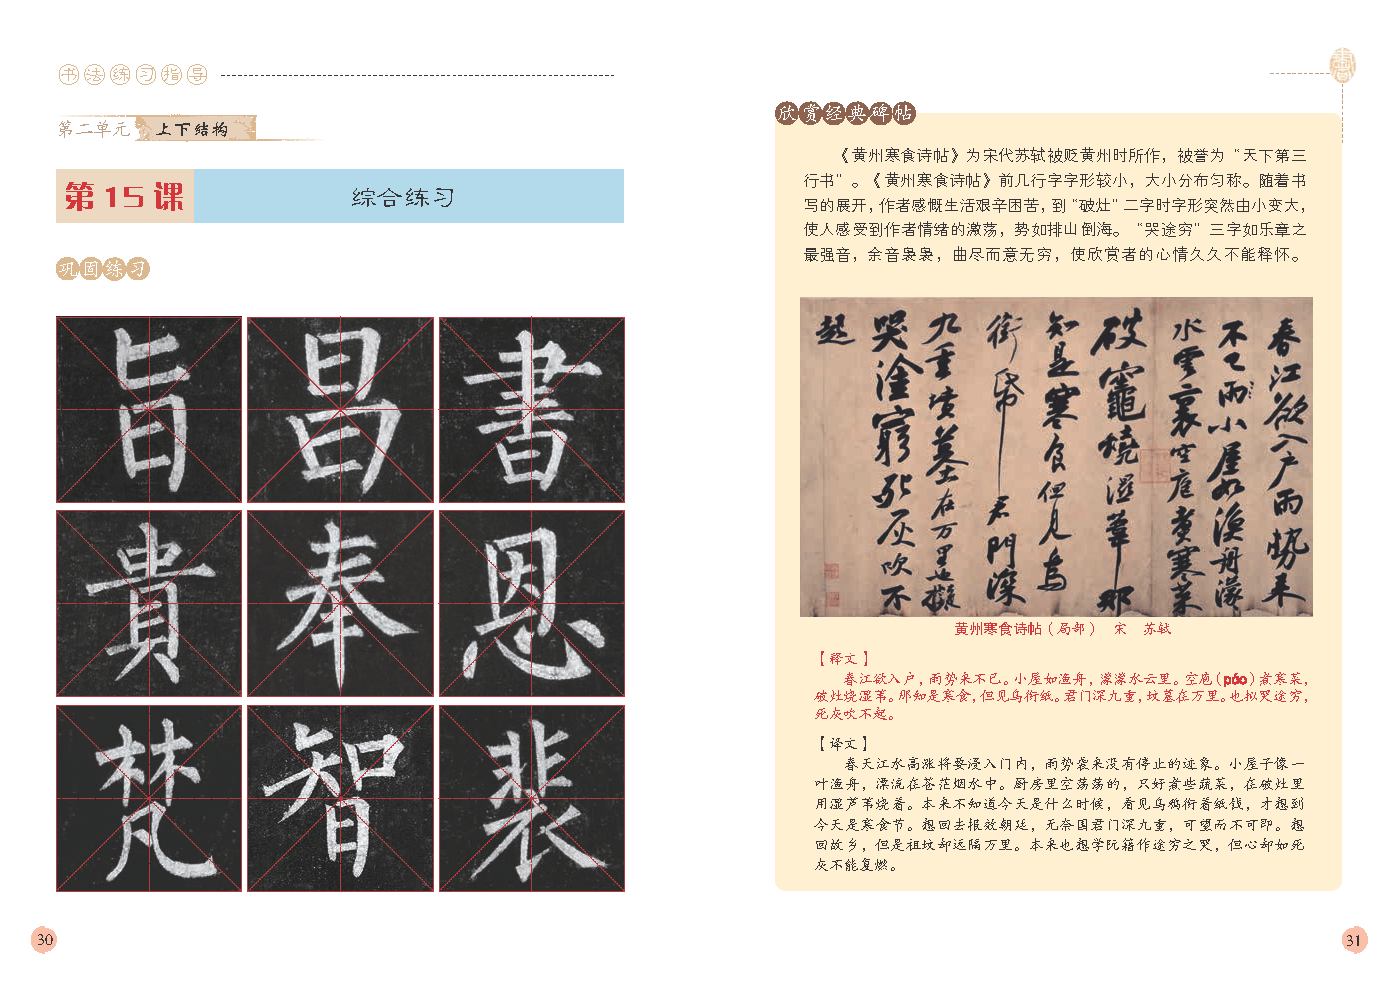 书法练习指导
第二单元 上下结构
第15课 综合练习
巩固练习
旨 昌 書
貴 奉 恩
梵 智 裴
30
欣赏经典碑帖
《黄州寒食诗帖》为宋代苏轼被贬黄州时所作，被誉为“天下第三
行书”。《黄州寒食诗帖》前几行字字形较小，大小分布匀称。随着书
写的展开，作者感慨生活艰辛困苦，到“破灶”二字时字形突然由小变大，
使人感受到作者情绪的激荡，势如排山倒海。“哭途穷”三字如乐章之
最强音，余音袅袅，曲尽而意无穷，使欣赏者的心情久久不能释怀。
春江欲入户雨势来
不已雨小屋如渔舟濛
水雲裏空庖煑寒菜
破竈燒濕葦那
知是寒食但見烏
銜帋君門深
九重墳墓在万里也擬
哭塗窮死灰吹不
起
黄州寒食诗帖（局部） 宋 苏轼
【释文】
春江欲入户，雨势来不已。小屋如渔舟，濛濛水云里。空庖（páo）煮寒菜，
破灶烧湿苇。那知是寒食，但见乌衔纸。君门深九重，坟墓在万里。也拟哭途穷，
死灰吹不起。
【译文】
春天江水高涨将要浸入门内，雨势袭来没有停止的迹象。小屋子像一
叶渔舟，漂流在苍茫烟水中。厨房里空荡荡的，只好煮些蔬菜，在破灶里
用湿芦苇烧着。本来不知道今天是什么时候，看见乌鸦衔着纸钱，才想到
今天是寒食节。想回去报效朝廷，无奈国君门深九重，可望而不可即。想
回故乡，但是祖坟却远隔万里。本来也想学阮籍作途穷之哭，但心却如死
灰不能复燃。
31